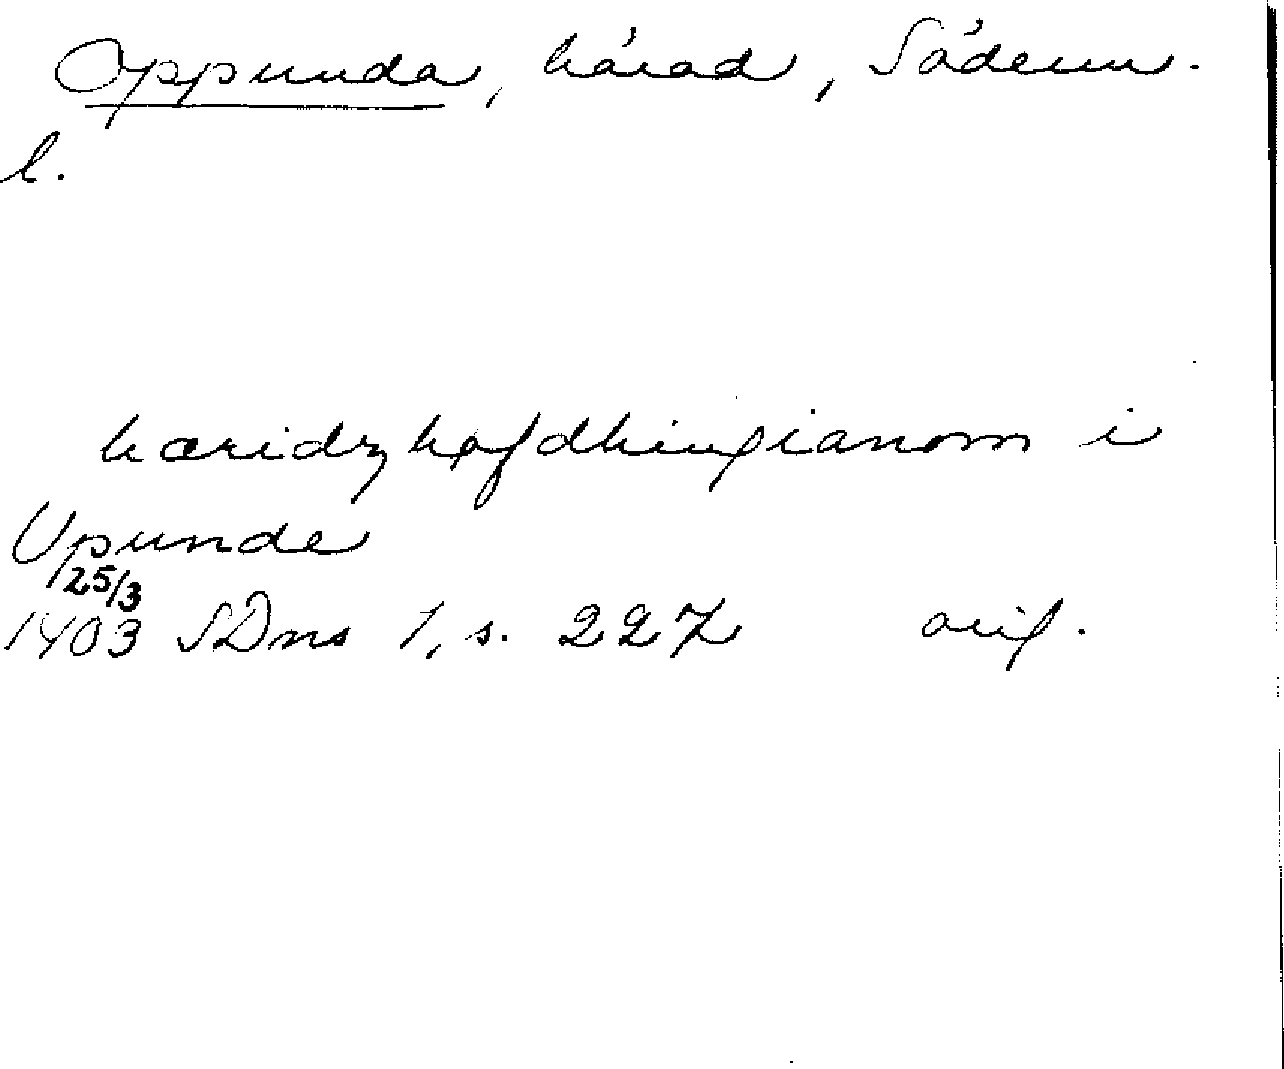 Oppunda, härad, Söderm.
l.
hæridzhøfdhingianom i
Upunde
25/3
1403 SDns 1, s. 227 orig.